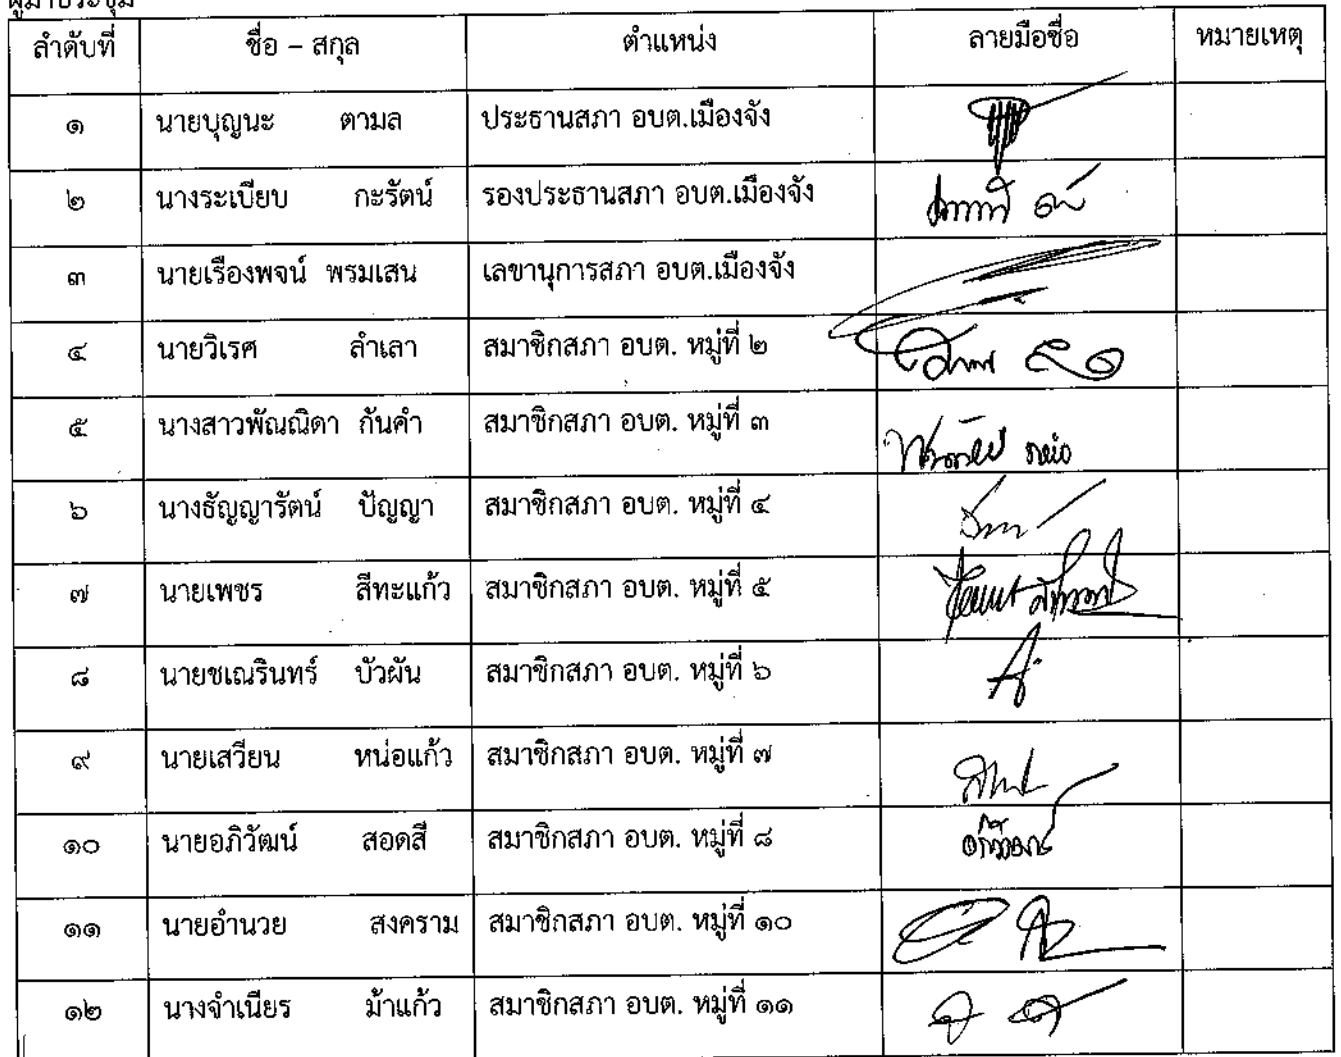 ผู้มาประชุม
ลำดับที่ ชื่อ – สกุล ตำแหน่ง ลายมือชื่อ หมายเหตุ
๑ นายบุญนะ ตามล ประธานสภา อบต.เมืองจัง
๒ นางระเบียบ กะรัตน์ รองประธานสภา อบต.เมืองจัง
๓ นายเรืองพจน์ พรมเสน เลขานุการสภา อบต.เมืองจัง
๔ นายวิเรศ ลำเลา สมาชิกสภา อบต. หมู่ที่ ๒
๕ นางสาวพัณณิดา กันคำ สมาชิกสภา อบต. หมู่ที่ ๓
๖ นางธัญญารัตน์ ปัญญา สมาชิกสภา อบต. หมู่ที่ ๔
๗ นายเพชร สีทะแก้ว สมาชิกสภา อบต. หมู่ที่ ๕
๘ นายชเณรินทร์ บัวผัน สมาชิกสภา อบต. หมู่ที่ ๖
๙ นายเสวียน หน่อแก้ว สมาชิกสภา อบต. หมู่ที่ ๗
๑๐ นายอภิวัฒน์ สอดสี สมาชิกสภา อบต. หมู่ที่ ๘
๑๑ นายอำนวย สงคราม สมาชิกสภา อบต. หมู่ที่ ๑๐
๑๒ นางจำเนียร ม้าแก้ว สมาชิกสภา อบต. หมู่ที่ ๑๑